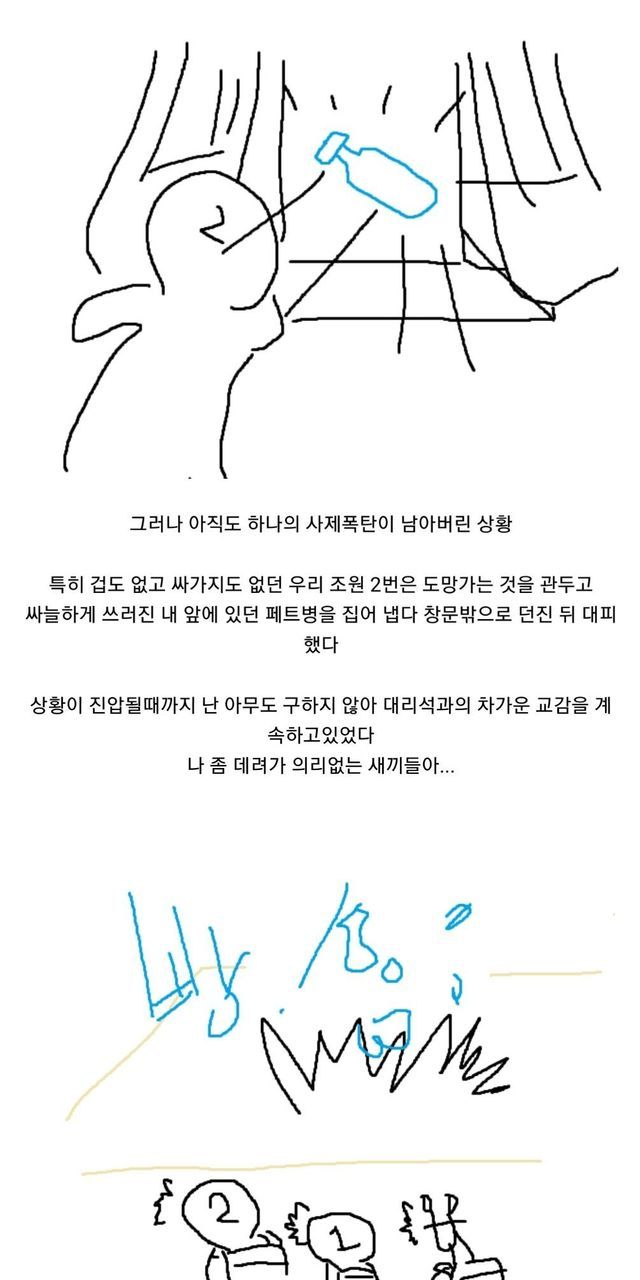 2
그러나 아직도 하나의 사제폭탄이 남아버린 상황
특히 겁도 없고 싸가지도 없던 우리 조원 2번은 도망가는 것을 관두고
싸늘하게 쓰러진 내 앞에 있던 페트병을 집어 냅다 창문밖으로 던진 뒤 대피
했다
상황이 진압될때까지 난 아무도 구하지 않아 대리석과의 차가운 교감을 계
속하고있었다
나 좀 데려가 의리없는 새끼들아...
2
1